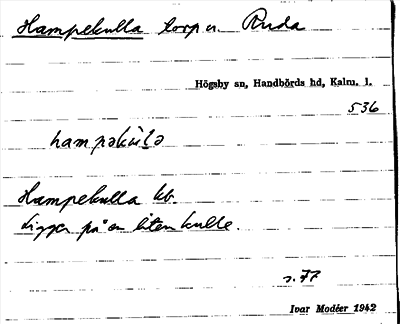 Hampekulla torp u. Ruda
Högsby sn, Handbörds hd, Kalm. l.
536
hampəkúla
Hampekulla kb.
Ligger på en liten kulle.
s. 77
Ivar Modéer 1942